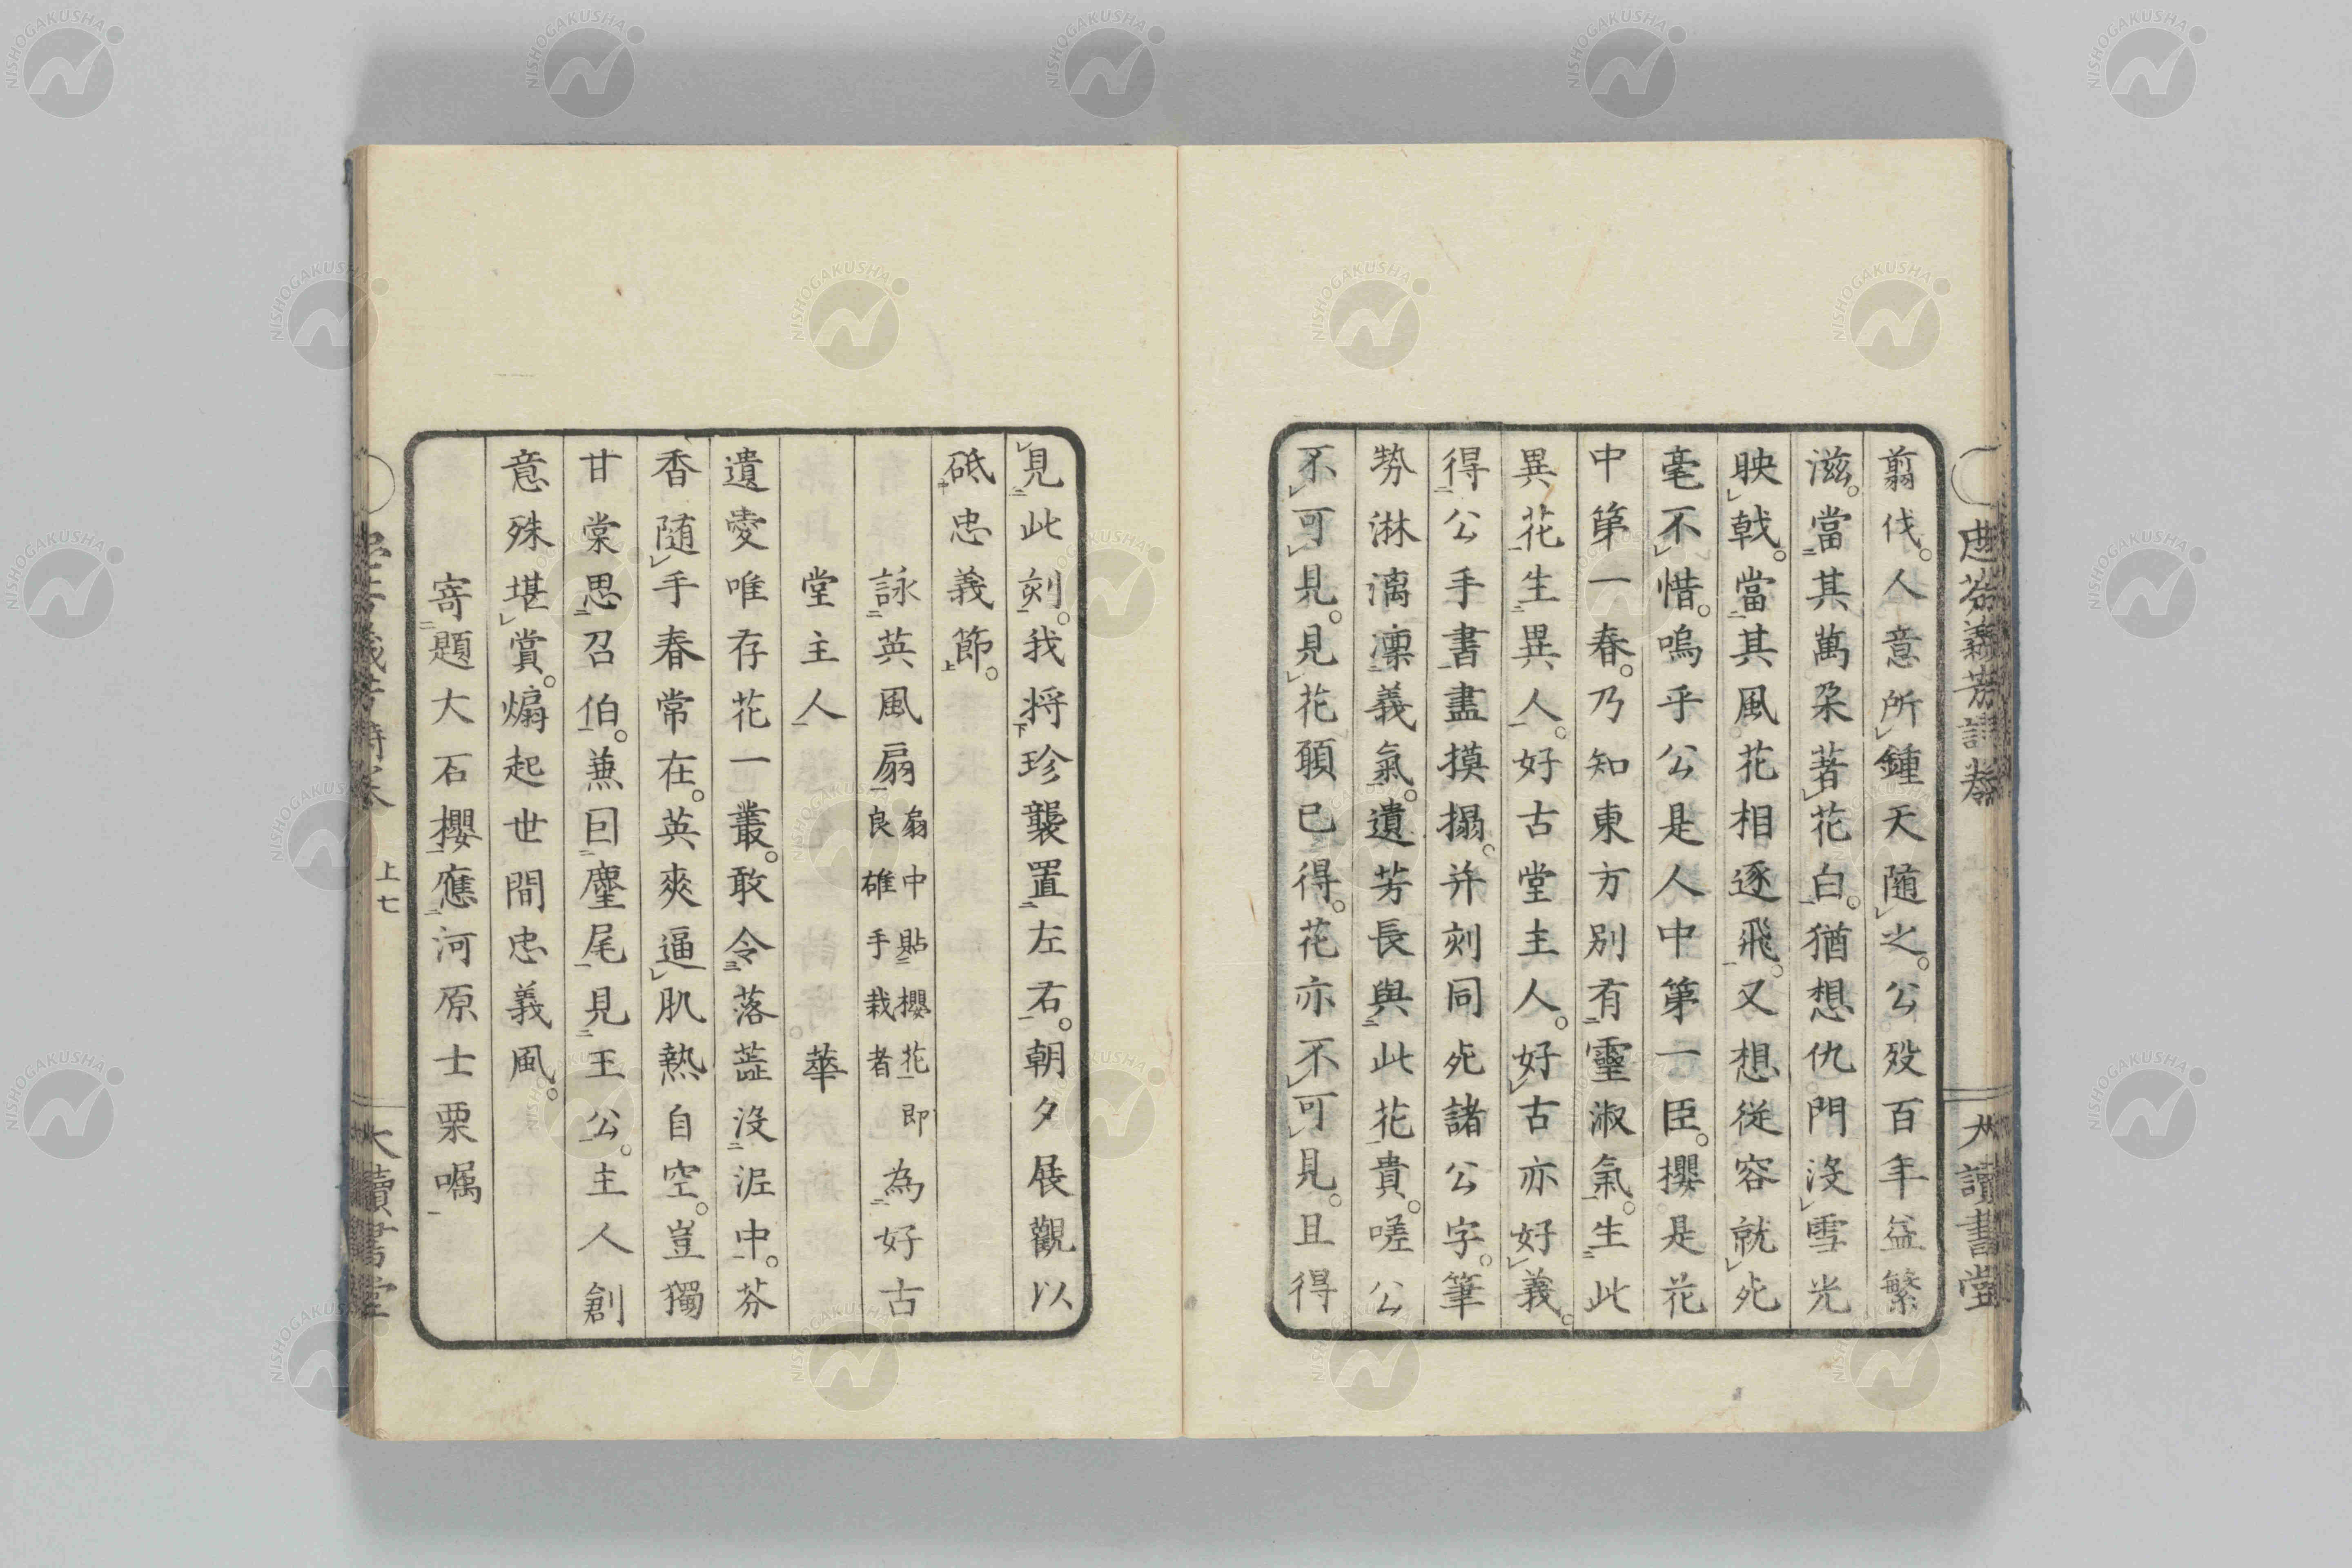 翦伐。人意所鍾天隨之。公殁百年益繁
滋。當其萬朶著花白。猶想仇門沒雪光
映戟。當其風花相逐飛。又想從容就死
毫不惜。嗚乎公是人中第一臣。櫻是花
中第一春。乃知東方別有靈淑氣。生此
異花生異人。好古堂主人。好古亦好義。
得公手書畫摸搨。并刻同死諸公字。筆
勢淋漓凜義氣。遺芳長與此花貴。嗟公
不可見。見花願已得。花亦不可見。且得
見此刻。我将珍襲置左右。朝夕展觀以
砥忠義節。
詠英風扇扇中貼櫻花即良雄手栽者為好古
堂主人 華
遺愛唯存花一叢。敢令落蕋沒泥中。芬
香随手春常在。英爽逼肌熱自空。豈獨
甘棠思召伯。兼囙麈尾見王公。主人創
意殊堪賞。煽起世間忠義風。
寄題大石櫻應河原士栗嘱
上七
大讀書堂
大讀書堂
NISHOGAKUSHA